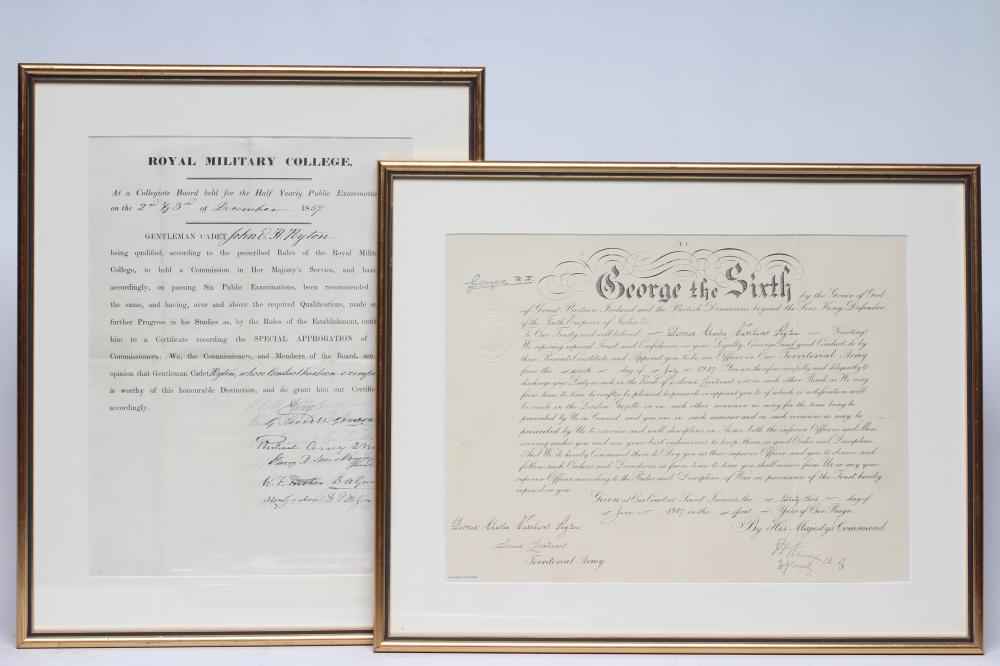 ROYAL MILITARY COLLEGE.
At a Collegiate Board held for the Half Yearly Public Examination
on the 2nd & 3rd of December 1857
GENTLEMAN CADET John E. H. Peyton
being qualified, according to the prescribed Rules of the Royal Milit
College, to hold a Commission in Her Majesty's Service, and havin
accordingly, on passing Six Public Examinations, been recommended
the same, and having, over and above the required Qualifications, made su
further Progress in his Studies as, by the Rules of the Establishment, entit
him to a Certificate recording the SPECIAL APPROBATION of
Commissioners; We, the Commissioners, and Members of the Board, are
opinion that Gentleman Cadet Peyton, whose conduct has been exemp
is worthy of this honourable Distinction, and do grant him our Certific
accordingly.
George R.I.
George the Sixth by the Grace of God
of Great Britain, Ireland and the British Dominions beyond the Seas King, Defender
of the Faith, Emperor of India &c.
To Our Trusty and well beloved Derrick Charles Peyton Greeting
We reposing especial Trust and Confidence in your Loyalty, Courage, and good Conduct, do by
these Presents Constitute and Appoint you to be an Officer in Our Territorial Army
from the day of July 1937. You are therefore carefully and diligently to
discharge your Duty as such in the Rank of Second Lieutenant or in such other Rank as We may
from time to time hereafter be pleased to promote or appoint you to, of which a notification will
be made in the London Gazette, or in such other manner as may for the time being be
prescribed by Us in Council, and you are in such manner and on such occasions as may be
prescribed by Us to exercise and well discipline in Arms both the inferior Officers and Men
serving under you and use your best endeavours to keep them in good Order and Discipline.
And We do hereby Command them to Obey you as their superior Officer, and you to observe and
follow such Orders and Directions as from time to time you shall receive from Us, or any your
superior Officer, according to the Rules and Discipline of War, in pursuance of the Trust hereby
reposed in you.
Given at Our Court, at Saint James's the day of
June 1937 in the first Year of Our Reign
By His Majesty's Command
Derrick Charles Peyton
Second Lieutenant
Territorial Army